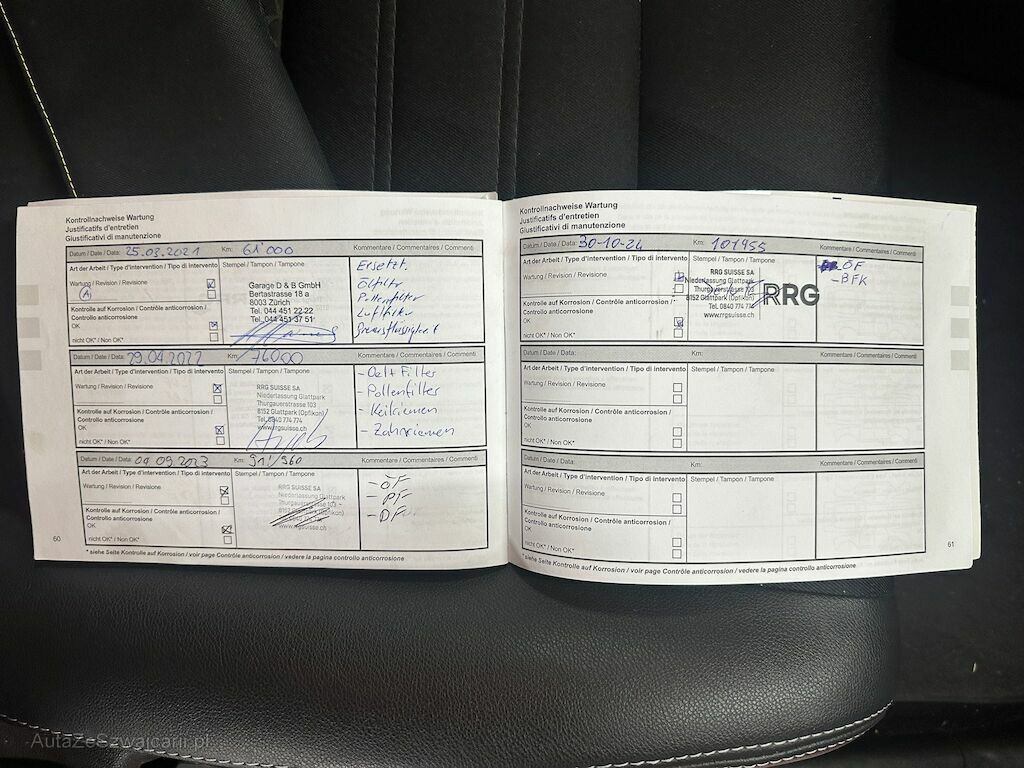 Kontrollnachweise Wartung
Justificatifs d'entretien
Giustificativi di manutenzione
Datum / Date / Data: 25.03.2021 Km: 61'000 Kommentare / Commentaires / Commenti
Art der Arbeit / Type d'intervention / Tipo di intervento Stempel / Tampon / Tampone
Wartung / Revision / Revisione
A
Kontrolle auf Korrosion / Contrôle anticorrosion /
Controllo anticorrosione
OK
nicht OK* / Non OK*
Garage D & B GmbH
Bertastrasse 18 a
8003 Zürich
Tel. 044 451 22 22
Tel. 044 451 37 51
Ersetzt.
Ölfilter
Pollenfilter
Luftfilter
Datum / Date / Data: 29.04.2022 Km: 76000 Kommentare / Commentaires / Commenti
Art der Arbeit / Type d'intervention / Tipo di intervento Stempel / Tampon / Tampone
Wartung / Revision / Revisione
Kontrolle auf Korrosion / Contrôle anticorrosion /
Controllo anticorrosione
OK
nicht OK* / Non OK*
RRG SUISSE SA
Niederlassung Glattpark
Thurgauerstrasse 103
8152 Glattpark (Opfikon)
Tel. 0840 774 774
www.rrgsuisse.ch
- Oel + Filter
- Pollenfilter
- Keilriemen
- Zahnriemen
Datum / Date / Data: 09.2023 Km: 91'960 Kommentare / Commentaires / Commenti
Art der Arbeit / Type d'intervention / Tipo di intervento Stempel / Tampon / Tampone
Wartung / Revision / Revisione
Kontrolle auf Korrosion / Contrôle anticorrosion /
Controllo anticorrosione
OK
nicht OK* / Non OK*
RRG SUISSE SA
Niederlassung Glattpark
Thurgauerstrasse 103
8152 Glattpark (Opfikon)
www.rrgsuisse.ch
- ÖF
- PF
- DF
60
* siehe Seite Kontrolle auf Korrosion / voir page Contrôle anticorrosion / vedere la pagina controllo anticorrosione
Kontrollnachweise Wartung
Justificatifs d'entretien
Giustificativi di manutenzione
Datum / Date / Data: 30-10-24 Km: 101955 Kommentare / Commentaires / Commenti
Art der Arbeit / Type d'intervention / Tipo di intervento Stempel / Tampon / Tampone
Wartung / Revision / Revisione
Kontrolle auf Korrosion / Contrôle anticorrosion /
Controllo anticorrosione
OK
nicht OK* / Non OK*
RRG SUISSE SA
Niederlassung Glattpark
Thurgauerstrasse 103
8152 Glattpark (Opfikon)
Tel. 0840 774 774
www.rrgsuisse.ch
RRG
- ÖF
- BFK
Datum / Date / Data: Km: Kommentare / Commentaires / Commenti
Art der Arbeit / Type d'intervention / Tipo di intervento Stempel / Tampon / Tampone
Wartung / Revision / Revisione
Kontrolle auf Korrosion / Contrôle anticorrosion /
Controllo anticorrosione
OK
nicht OK* / Non OK*
Datum / Date / Data: Km: Kommentare / Commentaires / Commenti
Art der Arbeit / Type d'intervention / Tipo di intervento Stempel / Tampon / Tampone
Wartung / Revision / Revisione
Kontrolle auf Korrosion / Contrôle anticorrosion /
Controllo anticorrosione
OK
nicht OK* / Non OK*
61
* siehe Seite Kontrolle auf Korrosion / voir page Contrôle anticorrosion / vedere la pagina controllo anticorrosione
AutaZeSzwajcarii.pl